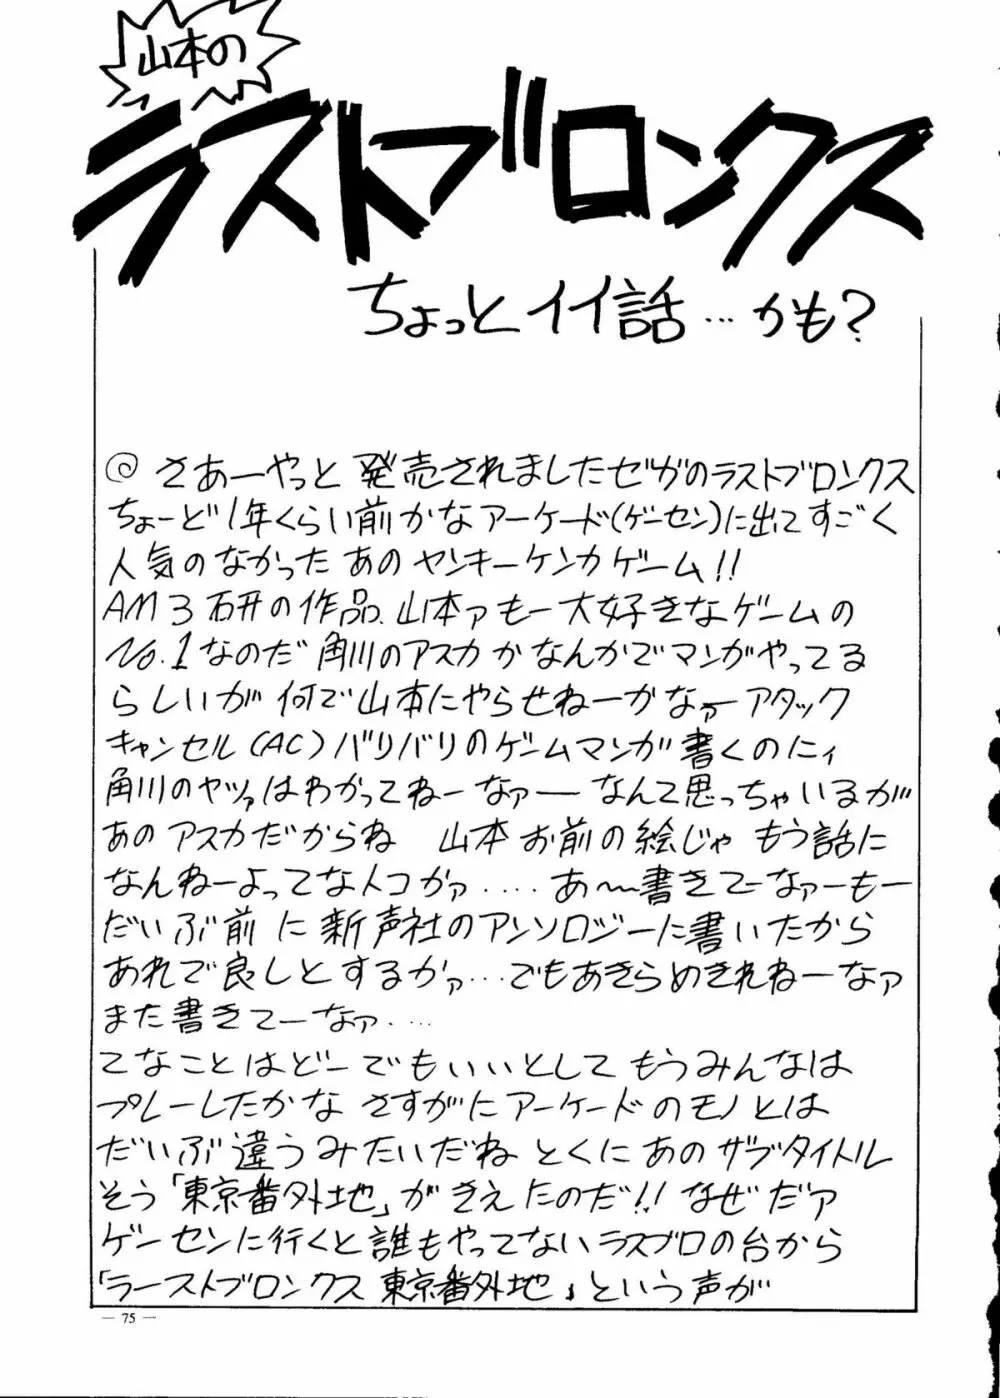 山本の
ラストブロンクス
ちょっとイイ話…かも?
さあーやっと発売されましたセガのラストブロンクス
ちょーど1年くらい前かなアーケード(ゲーセン)に出てすごく
人気のなかったあのヤンキーケンカゲーム!!
AM3研の作品、山本ァもー大好きなゲームの
No.1なのだ角川のアスカかなんかでマンガやってる
らしいが何で山本にやらせねーかなァーアタック
キャンセル(AC)バリバリのゲームマンガ書くのにィ
角川のヤツァはわかってねーなァーなんて思っちゃいるが
あのアスカだからね 山本お前の絵じゃもう話に
なんねーよってなトコかァ....あ〜書きてーなァーもー
だいぶ前に新声社のアンソロジーに書いたから
あれで良しとするかァ...でもあきらめきれねーなァ
また書きてーなァ....
てなことはどーでもいいとしてもうみんなは
プレーしたかな さすがにアーケードのモノとは
だいぶ違うみたいだね とくにあのサブタイトル
そう「東京番外地」がきえたのだ!! なぜだァ
ゲーセンに行くと誰もやってないラスブロの台から
「ラーストブロンクス 東京番外地」という声が
— 75 —